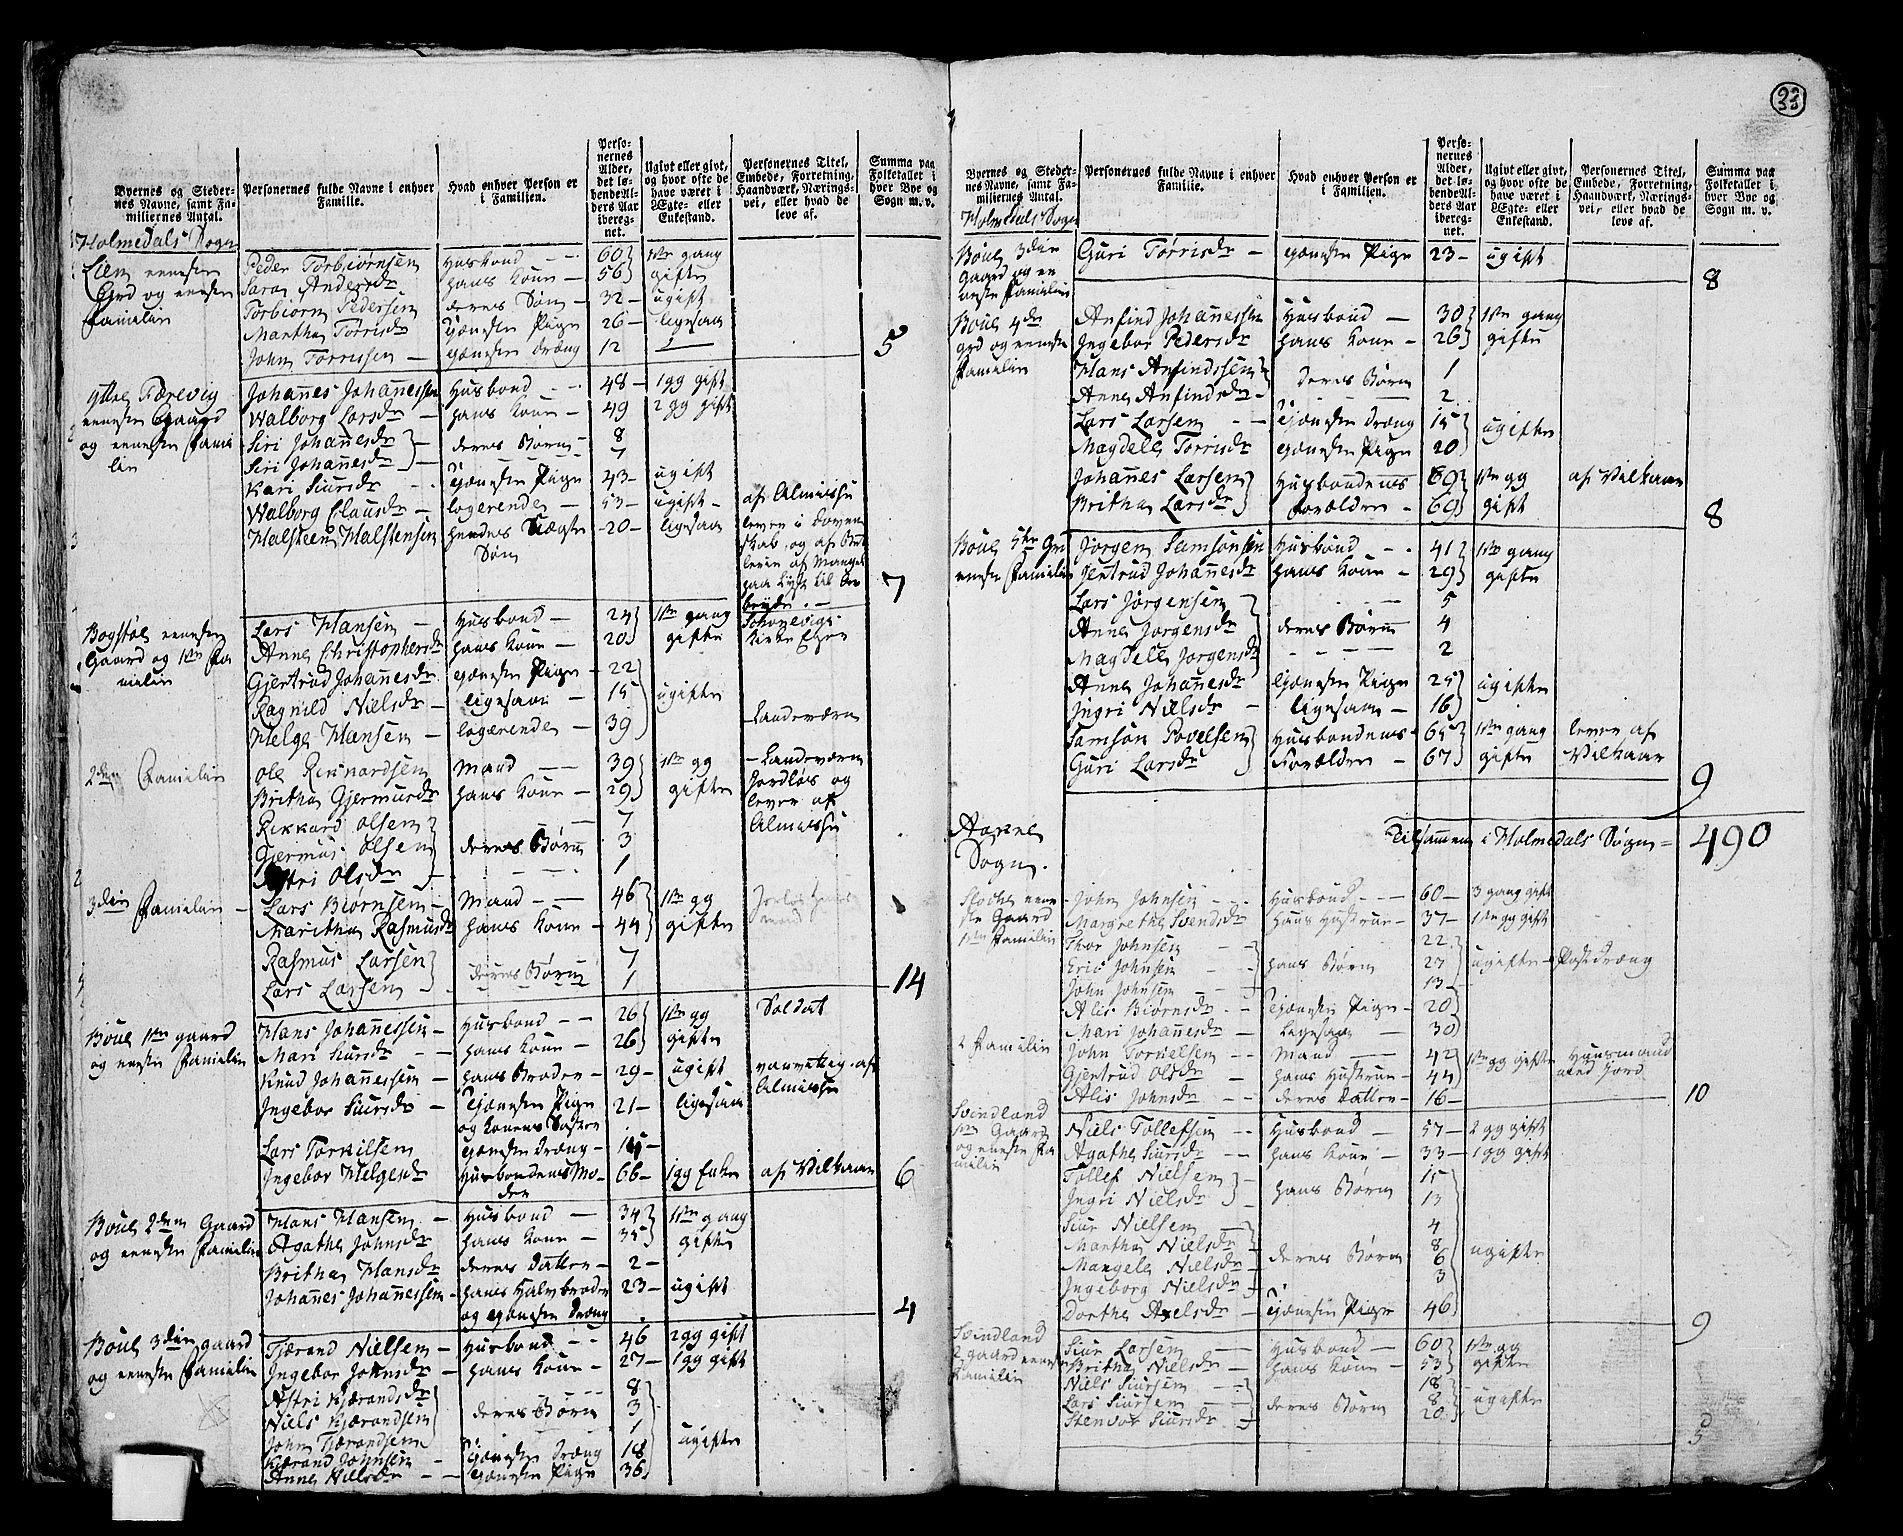 Byernes og Stedernes Navne, samt Familiernes Antal.
Personernes fulde Navne i enhver Familie.
Hvad enhver Person er i Familien.
Personernes Alder, det løbendeAlders Aar iberegnet.
Ugivt eller givt, og hvor ofte de have været i Ægte- eller Enkestand.
Personernes Titel, Embede, Forretning, Haandværk, Næringsvei, eller hvad de leve af.
Summa paa Folketallet i hver Bye og Sogn m. v.
Holmedals Sogn
Liem eeneste Grd og eeneste Familie
Peder Torbiørnsen Husbond 60 1ste gang
Sara Andersdr hans Kone 56 gifte
Torbiørn Pedersen deres Søn 32 ugift
Martha Torrisdr tjeneste Pige 26 ligesaa
John Torrissen tjeneste dreng 12
5
ytre Tærevig eeneste Gaard og eeneste Familie
Johannes Johannessen Husbond 48 1 gg gift
Walborg Larsdr hans Kone 49 2 gg gift
Siri Johannesdr deres Børn 8
Siri Johannesdr 7
Kari Siursdr tjeneste Pige 43 ugift
Walborg Clausdr logerende 53 ugift af Almisse
Halsteen Halstensen hendes Uægte Søn 20 ligesaa lever i dovenskab, og af Mangel paa Lyst til Arbeyde.
7
Bogstøe eeneste Gaard og 1ste Familie
Lars Hansen Husbond 24 1ste gang
Anne Christophersdr hans Kone 20 gifte
Gjertrud Johannesdr tjeneste Pige 22
Ragnild Nielsdr ligesaa 15 ugifte
Helge Hansen logerende 39 Landeværn
2den Familie
Ole Rikkardsen Mand 39 1ste gg Landeværn
Britha Gjermusdr hans Kone 29 gifte Jordløs og lever af Almisse
Rikkard Olsen 7
Gjermus Olsen deres Børn 3
Astri Olsdr 1
3die Familie
Lars Biørnsen Mand 46 1ste gg
Maritha Rasmusdr hans Kone 44 gifte
Rasmus Larsen 7
Lars Larsen deres Børn 1
14
Boue 1ste gaard og eeneste Familie
Hans Johannessen Husbond 26 1ste gg Soldat
Mari Siursdr hans Kone 26 gifte
Knud Johannessen hans Broder 29 ugift vanvittig af Almisse
Ingebor Siursdr tjeneste Pige og Konens Søster 21 ligesaa
Lars Torkilsen tjeneste dreng 15
Ingebor Helgesdr Husbondens Moder 66 1 gg Enke af Vilkaar
6
Boue 2den Gaard og eeneste Familie
Hans Hansen Husbond 34 1ste gang
Agathe Johnsdr hans Kone 35 gifte
Britha Hansdr deres datter 2
Johannes Johannessen hans Halvbroder og tjeneste dreng 23 ugift
4
Boue 3die gaard og eeneste Familie
Tjerand Nielsen Husbond 46 2 gg gift
Ingebor Johnsdr hans Kone 27 1 gg gift
Astri Kjærandsdr 8
Niels Kjærandsen deres Børn 3
John Tjærandsen 1
Kiærand Johnsen tjeneste dreng 18 ugifte
Anne Nielsdr tjeneste Pige 36
33
Byernes og Stedernes Navne, samt Familiernes Antal.
Personernes fulde Navne i enhver Familie.
Hvad enhver Person er i Familien.
Personernes Alder, det løbendeAlders Aar iberegnet.
Ugivt eller givt, og hvor ofte de have været i Ægte- eller Enkestand.
Personernes Titel, Embede, Forretning, Haandværk, Næringsvei, eller hvad de leve af.
Summa paa Folketallet i hver Bye og Sogn m. v.
Holmedals Sogn
Boue 3die Gaard og eeneste Familie
Guri Torrisdr tjeneste Pige 23 ugift
8
Boue 4de grd og eeneste Familie
Anfind Johannessen Husbond 30 1ste gang
Ingebor Pedersdr hans Kone 26 gifte
Hans Anfindssen deres Børn 1
Anne Anfindsdr 2
Lars Larsen tjeneste dreng 15 ugifte
Magdele Torrisdr tjeneste Pige 20
Johannes Larsen Husbondens 69 1ste gg af Vilkaar
Britha Larsdr Forældre 69 gift
8
Boue 5te Grd eeneste Familie
Jørgen Samsonsen Husbond 41 1ste gang
Gjertrud Johannesdr hans Kone 29 gifte
Lars Jørgensen 5
Anne Jørgensdr deres Børn 4
Magdele Jørgensdr 2
Anne Johannesdr tjeneste Pige 25 ugifte
Ingri Nielsdr ligesaa 16
Samson Povelsen Husbondens 65 1ste gang lever af
Guri Larsdr Forældre 67 gifte Vilkaar
9
Tilsammen i Holmedals Sogn = 490
Sogn.
eeneste Gaard 1ste Familie
John Johnsen Husbond 60 3 gang gift
Margrethe Svendsdr hans Hustrue 37 1ste gg gift
Thor Johnsen 22
Eric Johnsen hans Børn 27 ugifte Postdreng
John Johnsen 13
Alis Biørnsdr tjeneste Pige 20
Mari Johannesdr Ligesaa 30
2 Familie
John Torkelsen Mand 42 1ste gg gifte Huusmand
Gjertrud Olsdr hans Hustrue 44 med Jord
Alis Johnsdr deres datter 16
10
Svindland 1ste Gaard og eeneste Familie
Niels Tollefsen Husbond 57 2 gg gift
Agathe Siursdr hans Kone 33 1 gg gift
Tollef Nielsen 15
Ingri Nielsdr hans Børn 13
Siur Nielsen 4
Martha Nielsdr 8
Mangele Nielsdr deres Børn 6 ugifte
Ingeborg Nielsdr 3
Dorthe Axelsdr tjeneste Pige 46
9
Svindland 2 gaard eeneste Familie
Siur Larsen Husbond 60 1ste gg
Britha Nielsdr hans Kone 53 gifte
Niels Siursen 18
Lars Siursen deres Børn 8 ugifte
Stenvor Siursdr 20
5